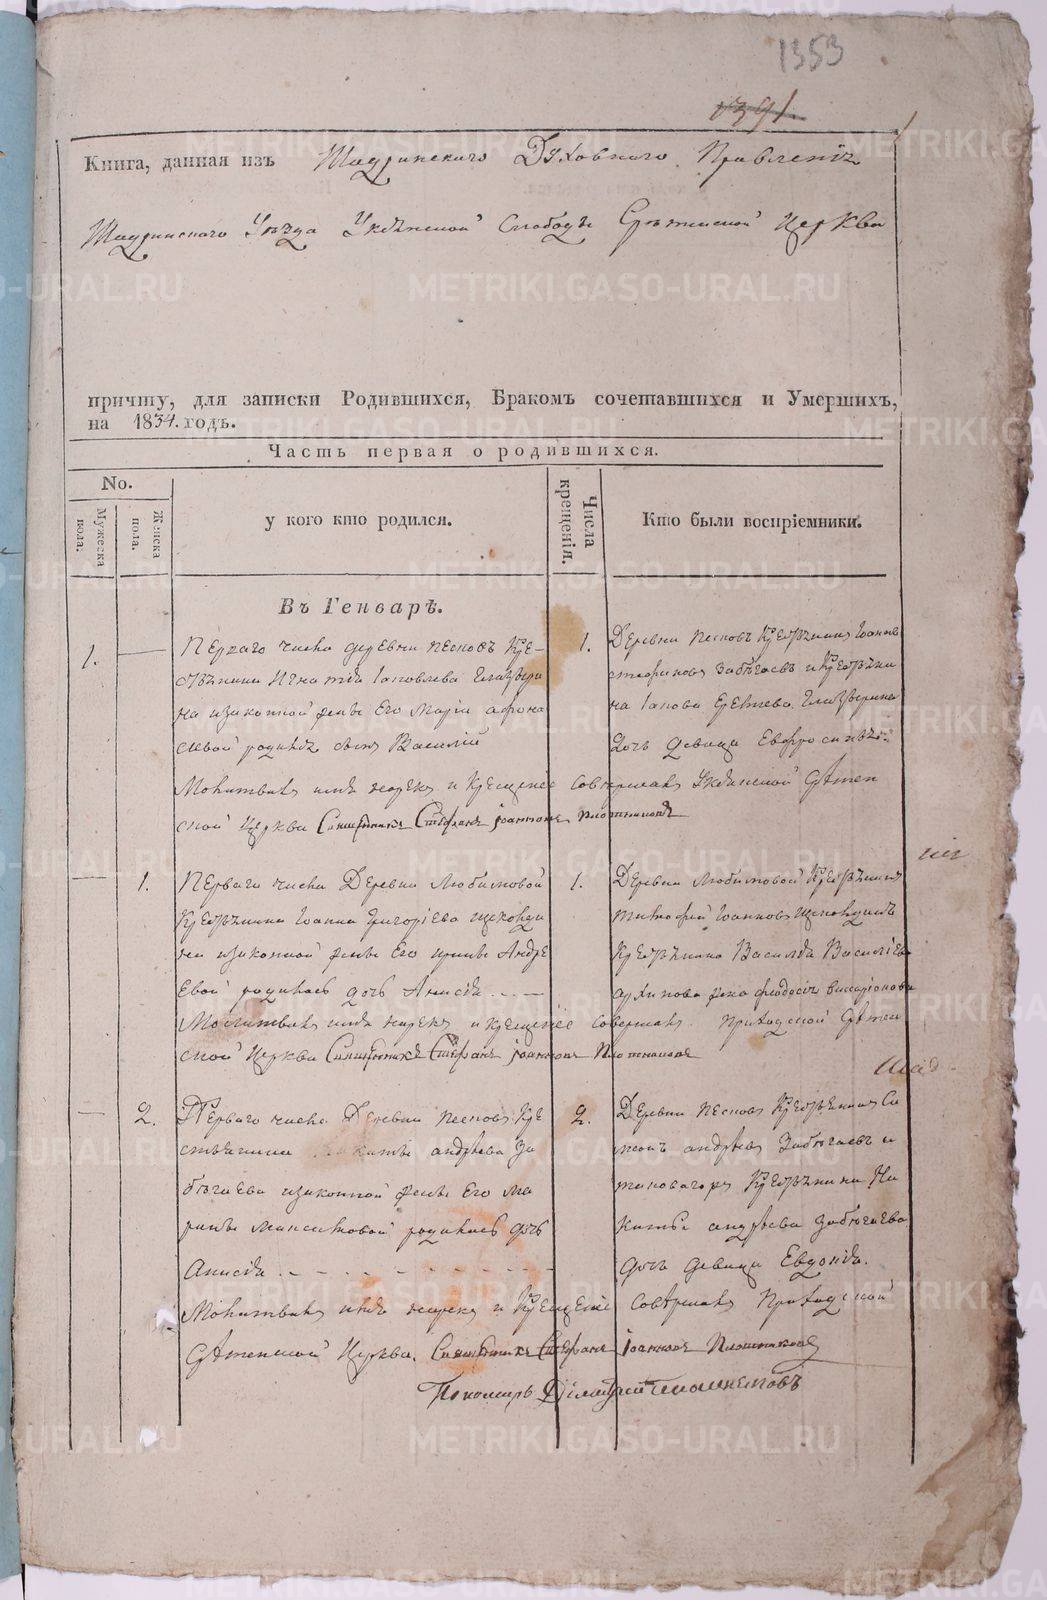 1353
1391.
Книга, данная изъ Шадринскаго Духовнаго Правленія
Шадринскаго Уезда Слободы Церкви
причту, для записки Родившихся, Бракомъ сочетавшихся и Умершихъ,
на 1834. годъ.
Часть первая о родившихся.
No.
Мужеска пола.
Женска пола.
у кого кто родился.
Числа крещенія.
Кто были воспріемники.
Въ Генварѣ.
1.
Перваго числа деревни Песковъ Кре-
стьянина Игнатія Іаковлева
на изаконной жены Его Маріи Афона
сьевой родился сынъ Василій
Молитвилъ имя нарекъ и Крещеніе совершалъ
ской Церкви Священникъ Стефанъ Іоанновъ Плотниковъ
1.
Деревни Песковъ Крестьянинъ Іоаннъ
Стефановъ Забегаевъ и Крестьяни
на Іакова
дочь девица Евфросинья
1.
Перваго числа Деревни Любимовой
Крестьянина Іоанна Григоріева
на изаконной жены Его Ирины Андре
евой родилась дочь Анисія
Молитвилъ имя нарекъ и крещеніе совершалъ Приходской
ской Церкви Священникъ Стефанъ Іоанновъ Плотниковъ
1.
Деревни Любимовой Крестьянинъ
Тимофей Іоанновъ
Крестьянина Василія Василіева
Архипова жена Феодосія
2.
Перваго числа Деревни Песковъ Кре
стьянина Никиты Андреева За
бегаева изаконной жены Его Ма
рины Максимовой родилась дочь
Анисія
Молитвилъ имя нарекъ и Крещеніе совершалъ Приходской
Церкви Священникъ Стефанъ Іоанновъ Плотниковъ
2.
Деревни Песковъ Крестьянинъ Си
монъ Андреевъ Забегаевъ и
таковагожъ Крестьянина Ни
киты Андреева Забегаева
дочь девица Евдокія.
Пономарь Димитрій
METRIKI.GASO-URAL.RU